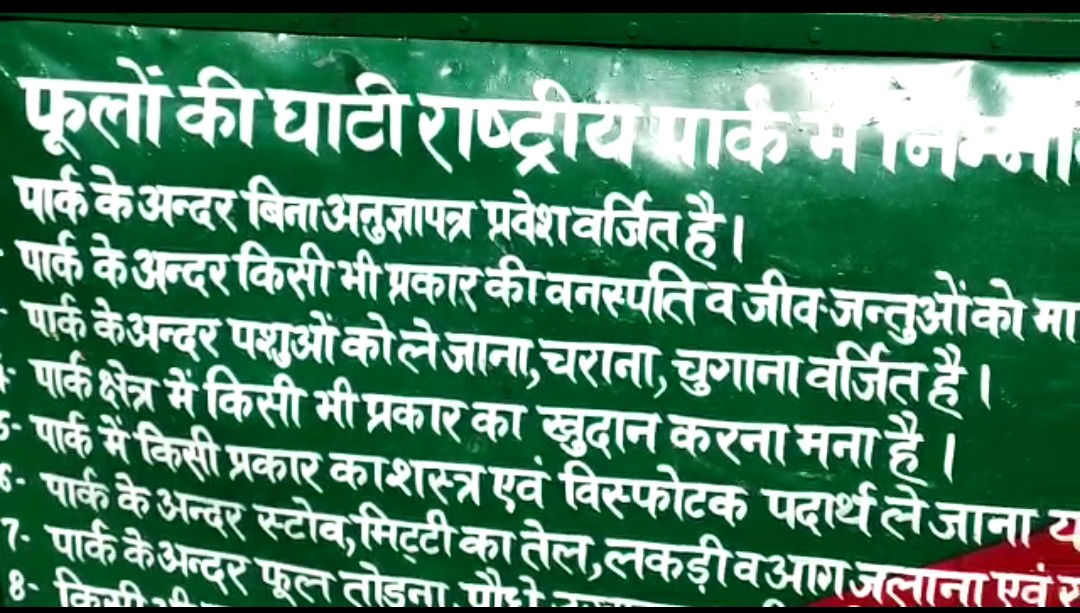 फूलों की घाटी राष्ट्रीय पार्क में
पार्क के अन्दर बिना अनुज्ञापत्र प्रवेश वर्जित है।
पार्क के अन्दर किसी भी प्रकार की वनस्पति व जीव-जन्तुओं को
पार्क के अन्दर पशुओं को ले जाना, चराना, चुगाना वर्जित है।
पार्क क्षेत्र में किसी भी प्रकार का खुदान करना मना है।
5- पार्क में किसी प्रकार का शस्त्र एवं विस्फोटक पदार्थ ले जाना
6- पार्क के अन्दर स्टोव, मिट्टी का तेल, लकड़ी व आग जलाना एवं
7- पार्क के अन्दर फूल तोडना, पौधे
8- किसी भी